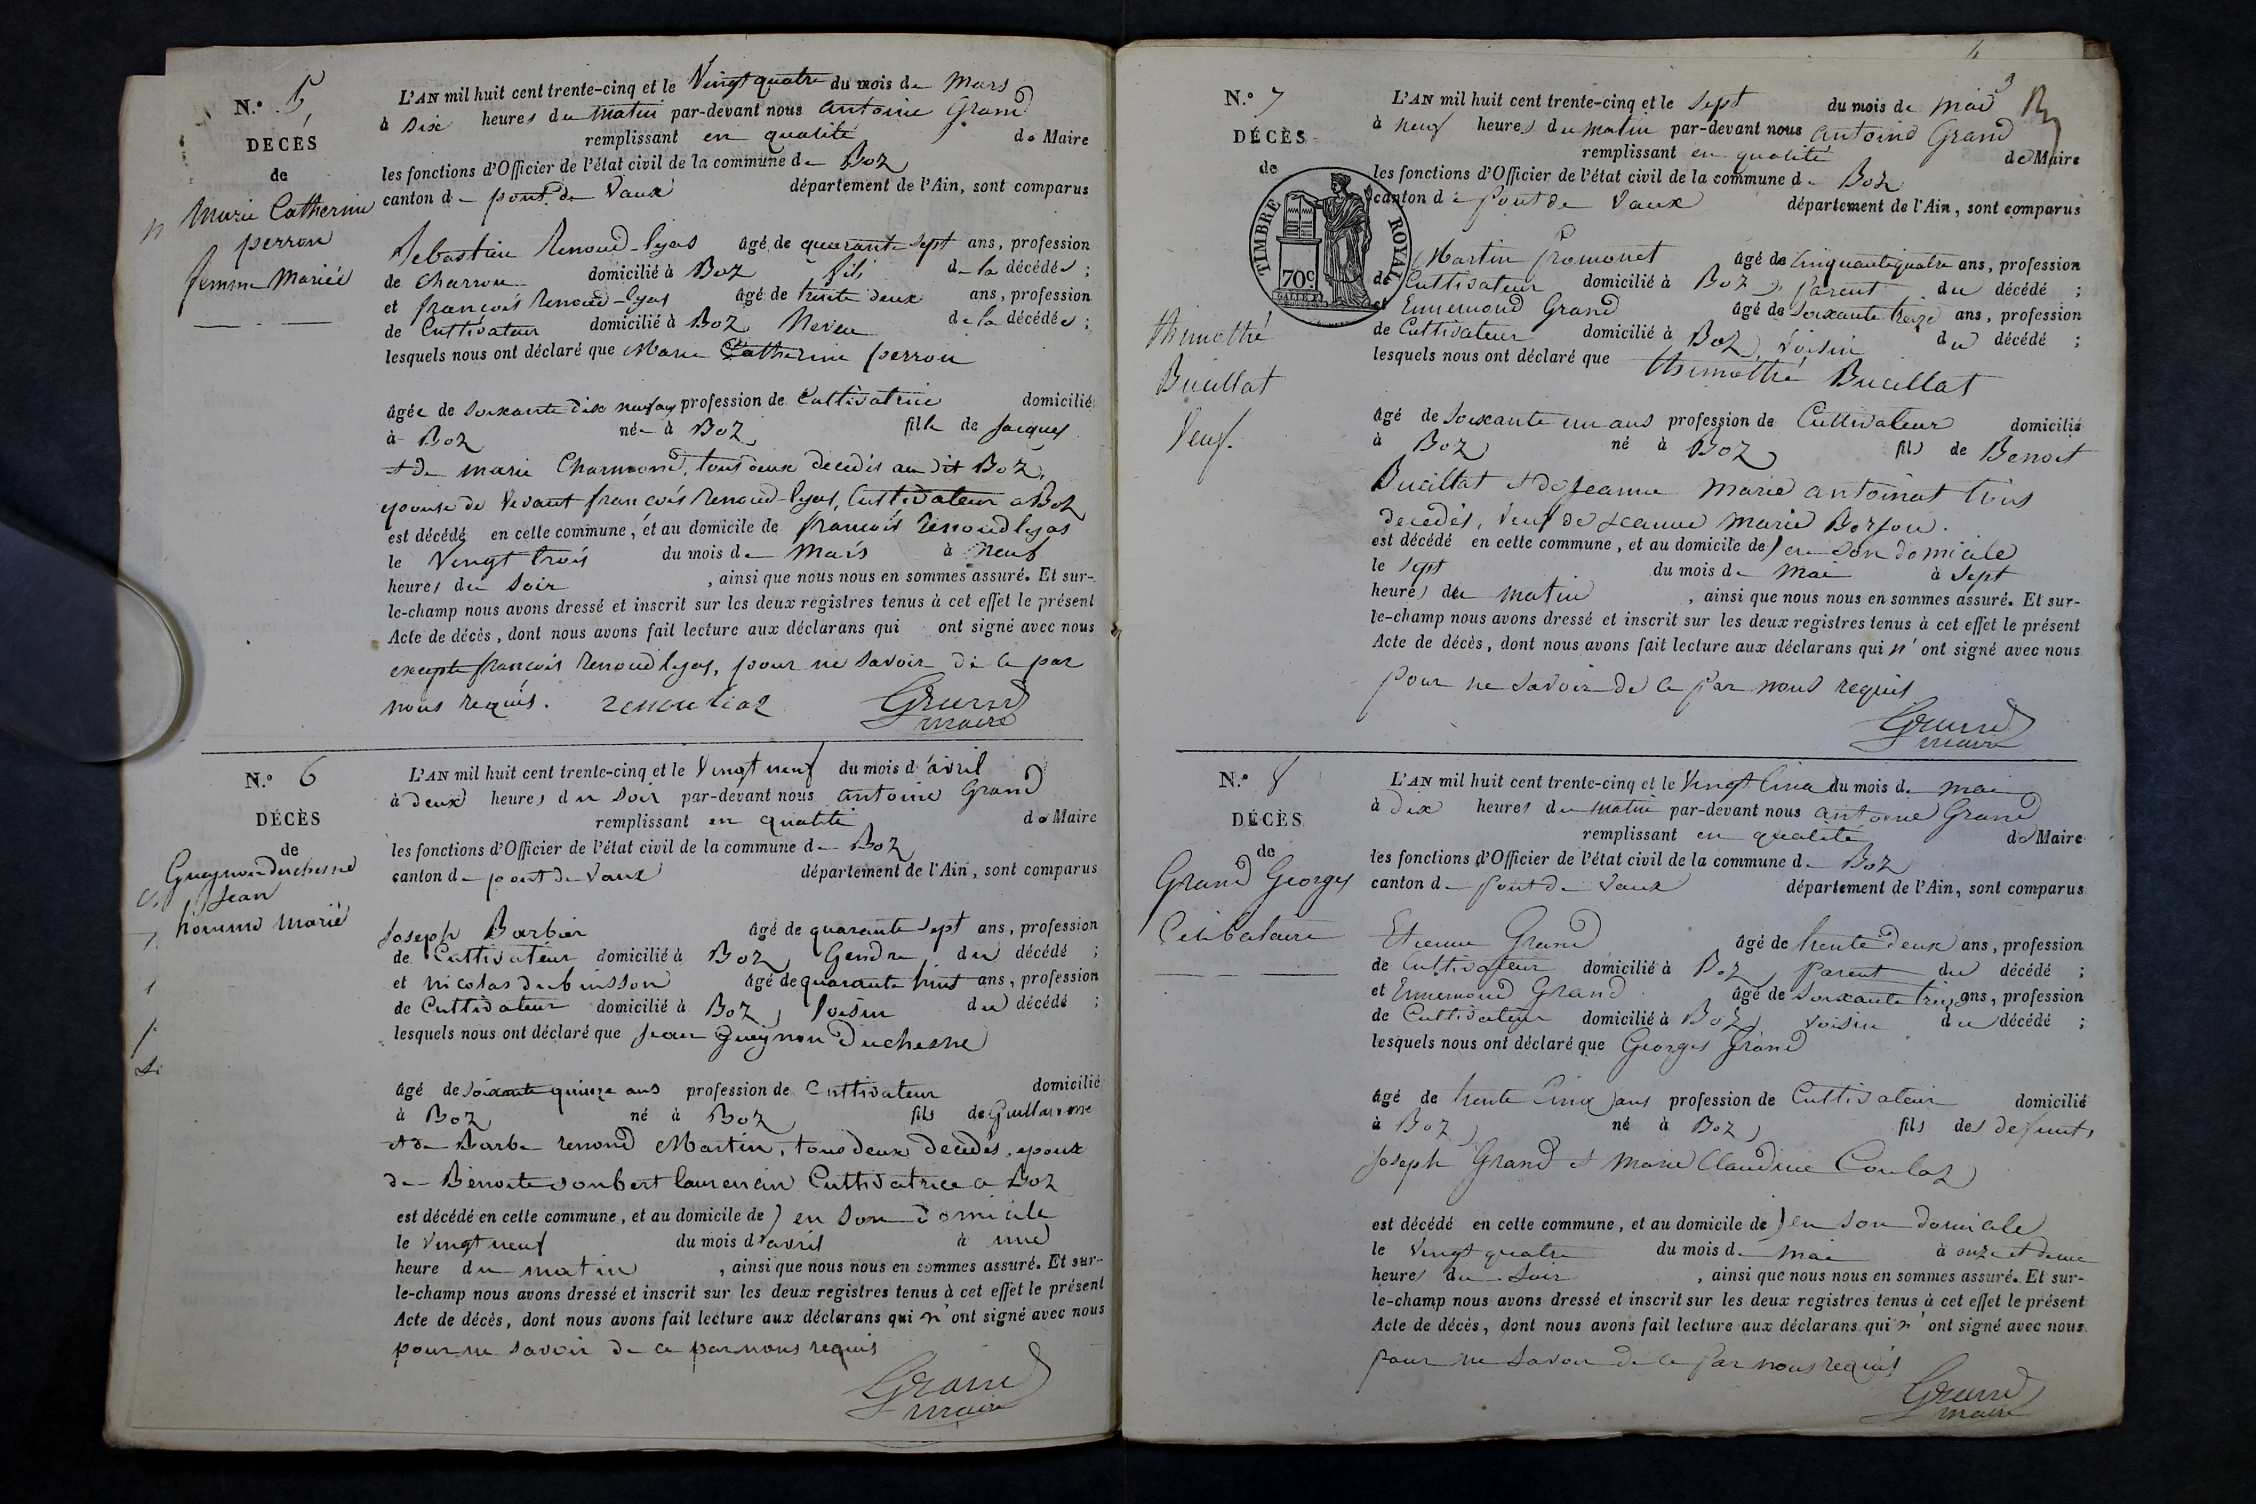 N.º 5
DÉCÈS
de
Marie Catherine
perron
femme Mariée
L'AN mil huit cent trente-cinq et le Vingt quatre du mois de Mars
à dix heures du matin par-devant nous antoine Grand
remplissant en qualité de Maire
les fonctions d'Officier de l'état civil de la commune de Boz
canton de pont de Vaux département de l'Ain, sont comparus
Sebastien Renoud-lyas âgé de quarante sept ans, profession
de charron domicilié à Boz fils de la décédée ;
et françois Renoud-lyas âgé de trente deux ans, profession
de Cultivateur domicilié à Boz Neveu de la décédée ;
lesquels nous ont déclaré que Marie Catherine perron
âgée de soixante dix neuf ans profession de Cultivatrice domicilié
à Boz née à Boz fille de Jacques
et de marie Charmond, tous deux decedés au dit Boz,
epouse de Vivant françois Renoud-lyas, Cultivateur a Boz
est décédé en cette commune, et au domicile de françois Renoud lyas
le Vingt trois du mois de Mars à neuf
heures du soir , ainsi que nous nous en sommes assuré. Et sur-
le-champ nous avons dressé et inscrit sur les deux registres tenus à cet effet le présent
Acte de décès, dont nous avons fait lecture aux déclarans qui ont signé avec nous
excepté françois Renoud lyas, pour ne savoir de ce par
nous requis. renou lias Grand
maire
N.º 6
DÉCÈS
de
Gueynon duchesne
Jean
homme marié
L'AN mil huit cent trente-cinq et le Vingt neuf du mois d'avril
à deux heures du soir par-devant nous antoine Grand
remplissant en qualité de Maire
les fonctions d'Officier de l'état civil de la commune de Boz
canton de pont de Vaux département de l'Ain, sont comparus
Joseph Barbier âgé de quarante sept ans, profession
de Cultivateur domicilié à Boz, Gendre du décédé ;
et nicolas dubuisson âgé de quarante huit ans, profession
de Cultivateur domicilié à Boz, Voisin du décédé ;
lesquels nous ont déclaré que Jean Gueynon Duchesne
âgé de soixante quinze ans profession de Cultivateur domicilié
à Boz né à Boz fils de Guillaume
et de Barbe renoud Martin, tous deux decedés, epoux
de Benoite Joubert laurencin Cultivatrice a Boz
est décédé en cette commune, et au domicile de) en son domicile
le Vingt neuf du mois d'avril à une
heure du matin , ainsi que nous nous en sommes assuré. Et sur-
le-champ nous avons dressé et inscrit sur les deux registres tenus à cet effet le présent
Acte de décès, dont nous avons fait lecture aux déclarans qui n'ont signé avec nous
pour ne savoir de ce par nous requis
Grand
maire
4
N.º 7
DÉCÈS
de
TIMBRE ROYAL
70c
Thimothé
Bucillat
Veuf.
L'AN mil huit cent trente-cinq et le sept du mois de mai
à neuf heures du matin par-devant nous antoine Grand
remplissant en qualité de Maire
les fonctions d'Officier de l'état civil de la commune de Boz
canton de pont de Vaux département de l'Ain, sont comparus
Martin fromonet âgé de Cinquante quatre ans, profession
de Cultivateur domicilié à Boz, parent du décédé ;
et Ennemond Grand âgé de soixante treize ans, profession
de Cultivateur domicilié à Boz, voisin du décédé ;
lesquels nous ont déclaré que thimothé Bucillat
âgé de soixante un ans profession de Cultivateur domicilié
à Boz né à Boz fils de Benoit
Bucillat et de Jeanne Marie antoinat tous
decedés, Veuf de Jeanne Marie Borjon.
est décédé en cette commune, et au domicile de) en son domicile
le sept du mois de mai à sept
heures du matin , ainsi que nous nous en sommes assuré. Et sur-
le-champ nous avons dressé et inscrit sur les deux registres tenus à cet effet le présent
Acte de décès, dont nous avons fait lecture aux déclarans qui n'ont signé avec nous
pour ne savoir de ce par nous requis
Grand
maire
N.º 8
DÉCÈS
de
Grand Georges
Celibataire
L'AN mil huit cent trente-cinq et le Vingt Cinq du mois de mai
à dix heures du matin par-devant nous antoine Grand
remplissant en qualité de Maire
les fonctions d'Officier de l'état civil de la commune de Boz
canton de pont de Vaux département de l'Ain, sont comparus
Etienne Grand âgé de trente deux ans, profession
de Cultivateur domicilié à Boz, parent du décédé ;
et Ennemond Grand âgé de soixante treize ans, profession
de Cultivateur domicilié à Boz, voisin du décédé ;
lesquels nous ont déclaré que Georges Grand
âgé de trente Cinq ans profession de Cultivateur domicilié
à Boz, né à Boz, fils des defunts
Joseph Grand et Marie Claudine Coulas
est décédé en cette commune, et au domicile de) en son domicile
le Vingt quatre du mois de mai à onze et demie
heures du soir , ainsi que nous nous en sommes assuré. Et sur-
le-champ nous avons dressé et inscrit sur les deux registres tenus à cet effet le présent
Acte de décès, dont nous avons fait lecture aux déclarans qui n'ont signé avec nous
pour ne savoir de ce par nous requis
Grand
maire